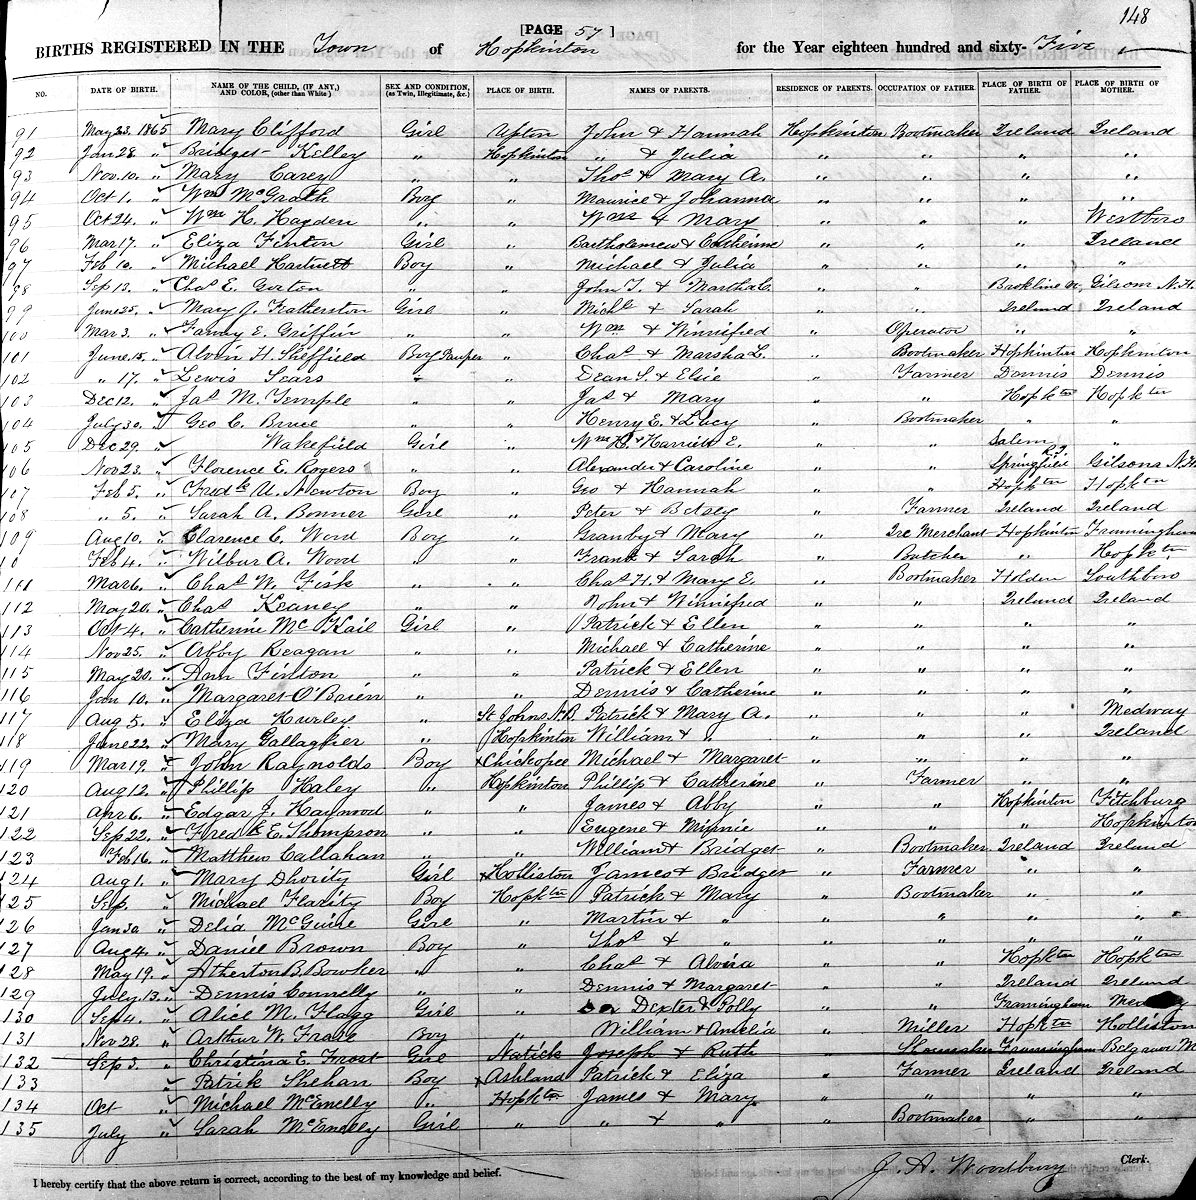 148
[PAGE 57 ]
BIRTHS REGISTERED IN THE Town of Hopkinton for the Year eighteen hundred and sixty-Five
NO. DATE OF BIRTH. NAME OF THE CHILD, (IF ANY,) AND COLOR, (other than White) SEX AND CONDITION, (as Twin, Illegitimate, &c.) PLACE OF BIRTH. NAMES OF PARENTS. RESIDENCE OF PARENTS. OCCUPATION OF FATHER. PLACE OF BIRTH OF FATHER. PLACE OF BIRTH OF MOTHER.
91 May 23. 1865 Mary Clifford Girl Upton John & Hannah Hopkinton Bootmaker Ireland Ireland
92 Jan 28. " Bridget Kelley " Hopkinton " & Julia " " " "
93 Nov. 10. " Mary Carey " " Thos & Mary A. " " " "
94 Oct 1. " Wm McGrath Boy " Maurice & Johanna " " " "
95 Oct 24. " Wm H. Hayden " " Wm & Mary " " " Westboro
96 Mar 17. " Eliza Finton Girl " Bartholemew & Catherine " " " Ireland
97 Feb 10. " Michael Hartnett Boy " Michael & Julia " " " "
98 Sep 13. " Chas E. Gorton " " John T. & Martha C. " " Brookline Gilsom N.H.
99 June 25. " Mary J. Fatherston Girl " Michl & Sarah " " Ireland Ireland
100 Mar 3. " Fanny E. Griffin " " Wm & Winnifred " Operator " "
101 June 15. " Alvin H. Sheffield Boy Pauper " Chas & Marsha L. " Bootmaker Hopkinton Hopkinton
102 " 17. " Lewis Sears " " Dean S. & Elsie " Farmer Dennis Dennis
103 Dec 12. " Jas M. Temple " " Jas & Mary " " Hopktn Hopktn
104 July 30. " Geo C. Bruce " " Henry E. & Lucy " Bootmaker " "
105 Dec 29. " Wakefield Girl " Wm H. & Harriett E. " " Salem "
106 Nov 23. " Florence E. Rogers " " Alexander & Caroline " " Springfield Gilsons N.H.
107 Feb 5. " Fredk U. Newton Boy " Geo & Hannah " " Hopktn Hopktn
108 " 5. " Sarah A. Bonner Girl " Peter & Betsey " Farmer Ireland Ireland
109 Aug 10. " Clarence C. Wood Boy " Granby & Mary " Ice Merchant Hopkinton Framingham
10 Feb 4. " Wilbur A. Wood " " Frank & Sarah " Butcher " Hopktn
111 Mar 6. " Chas W. Fisk " " Chas H. & Mary E. " Bootmaker Holden Southboro
112 May 20. " Chas Keaney " " John & Winnifred " " Ireland Ireland
113 Oct 4. " Catherine Mc Kail Girl " Patrick & Ellen " " " "
114 Nov 25. " Abby Reagan " " Michael & Catherine " " " "
115 May 20. " Ann Finton " " Patrick & Ellen " " " "
116 Jan 10. " Margaret O'Brien " " Dennis & Catherine " " " "
117 Aug 5. " Eliza Hurley " St Johns N.B. Patrick & Mary A. " " " Medway
118 June 22. " Mary Gallagher " Hopkinton William & " " " " Ireland
119 Mar 19. " John Raynolds Boy Chickopee Michael & Margaret " " " "
120 Aug 12. " Phillip Haley " Hopkinton Phillip & Catherine " Farmer " "
121 Apr 6. " Edgar J. Haywood " " James & Abby " " Hopkinton Fitchburg
122 Sep 22. " Fredk E. Thompson " " Eugene & Minnie " " " Hopkinton
123 Feb 16. " Matthew Callahan " " William & Bridget " Bootmaker Ireland Ireland
124 Aug 1. " Mary Dhority Girl Holliston James & Bridget " Farmer " "
125 Sep " Michael Flarity Boy Hopktn Patrick & Mary " Bootmaker " "
126 Jan 30 " Delia McGuire Girl " Martin & " " " " "
127 Aug 4. " Daniel Brown Boy " Thos & " " " " "
128 May 19. " Atherton B. Bowker " " Chas & Alvira " " Hopktn Hopktn
129 July 13. " Dennis Connelly " " Dennis & Margaret " " Ireland Ireland
130 Sep 4. " Alice M. Flagg Girl " Dexter & Polly " " Framingham Medway
131 Nov 28. " Arthur W. Frail Boy " William & Amelia " Miller Hopktn Holliston
132 Sep 3. " Christina E. Frost Girl Natick Joseph & Ruth " Shoemaker Framingham Belgrave M
133 " Patrik Shehan Boy Ashland Patrick & Eliza " Farmer Ireland Ireland
134 Oct " Michael McEnelly " Hopktn James & Mary " " " "
135 July " Sarah McEnelly Girl " " & " " Bootmaker " "
I hereby certify that the above return is correct, according to the best of my knowledge and belief. J. A. Woodbury Clerk.